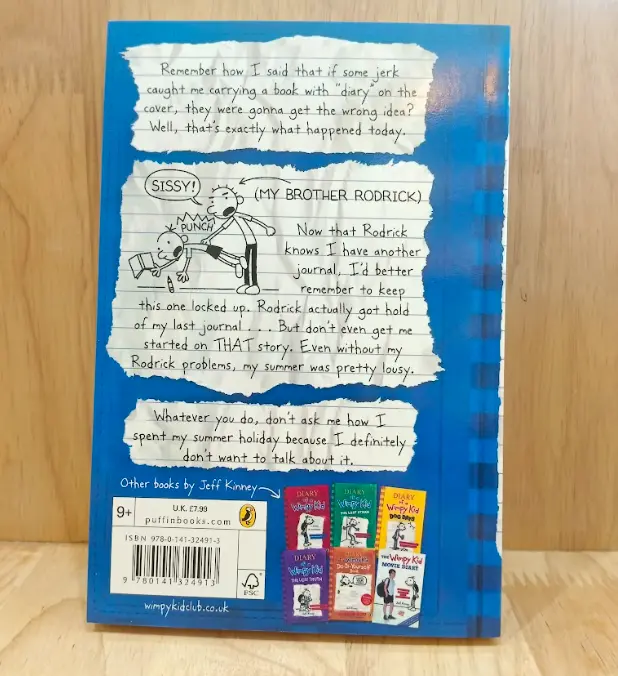 Remember how I said that if some jerk
caught me carrying a book with "diary" on the
cover, they were gonna get the wrong idea?
Well, that's exactly what happened today.
SISSY!
(MY BROTHER RODRICK)
PUNCH
Now that Rodrick
knows I have another
journal, I'd better
remember to keep
this one locked up. Rodrick actually got hold
of my last journal . . . But don't even get me
started on THAT story. Even without my
Rodrick problems, my summer was pretty lousy.
Whatever you do, don't ask me how I
spent my summer holiday because I definitely
don't want to talk about it.
Other books by Jeff Kinney
9+
U.K. £7.99
puffinbooks.com
ISBN 978-0-141-32491-3
9 780141 324913
FSC
wimpykidclub.co.uk
DIARY
of a
Wimpy Kid
DIARY
of a
Wimpy Kid
THE LAST STRAW
DIARY
of a
Wimpy Kid
DOG DAYS
DIARY
of a
Wimpy Kid
THE UGLY TRUTH
Wimpy Kid
Do-It-Yourself
Book
THE Wimpy Kid
MOVIE DIARY